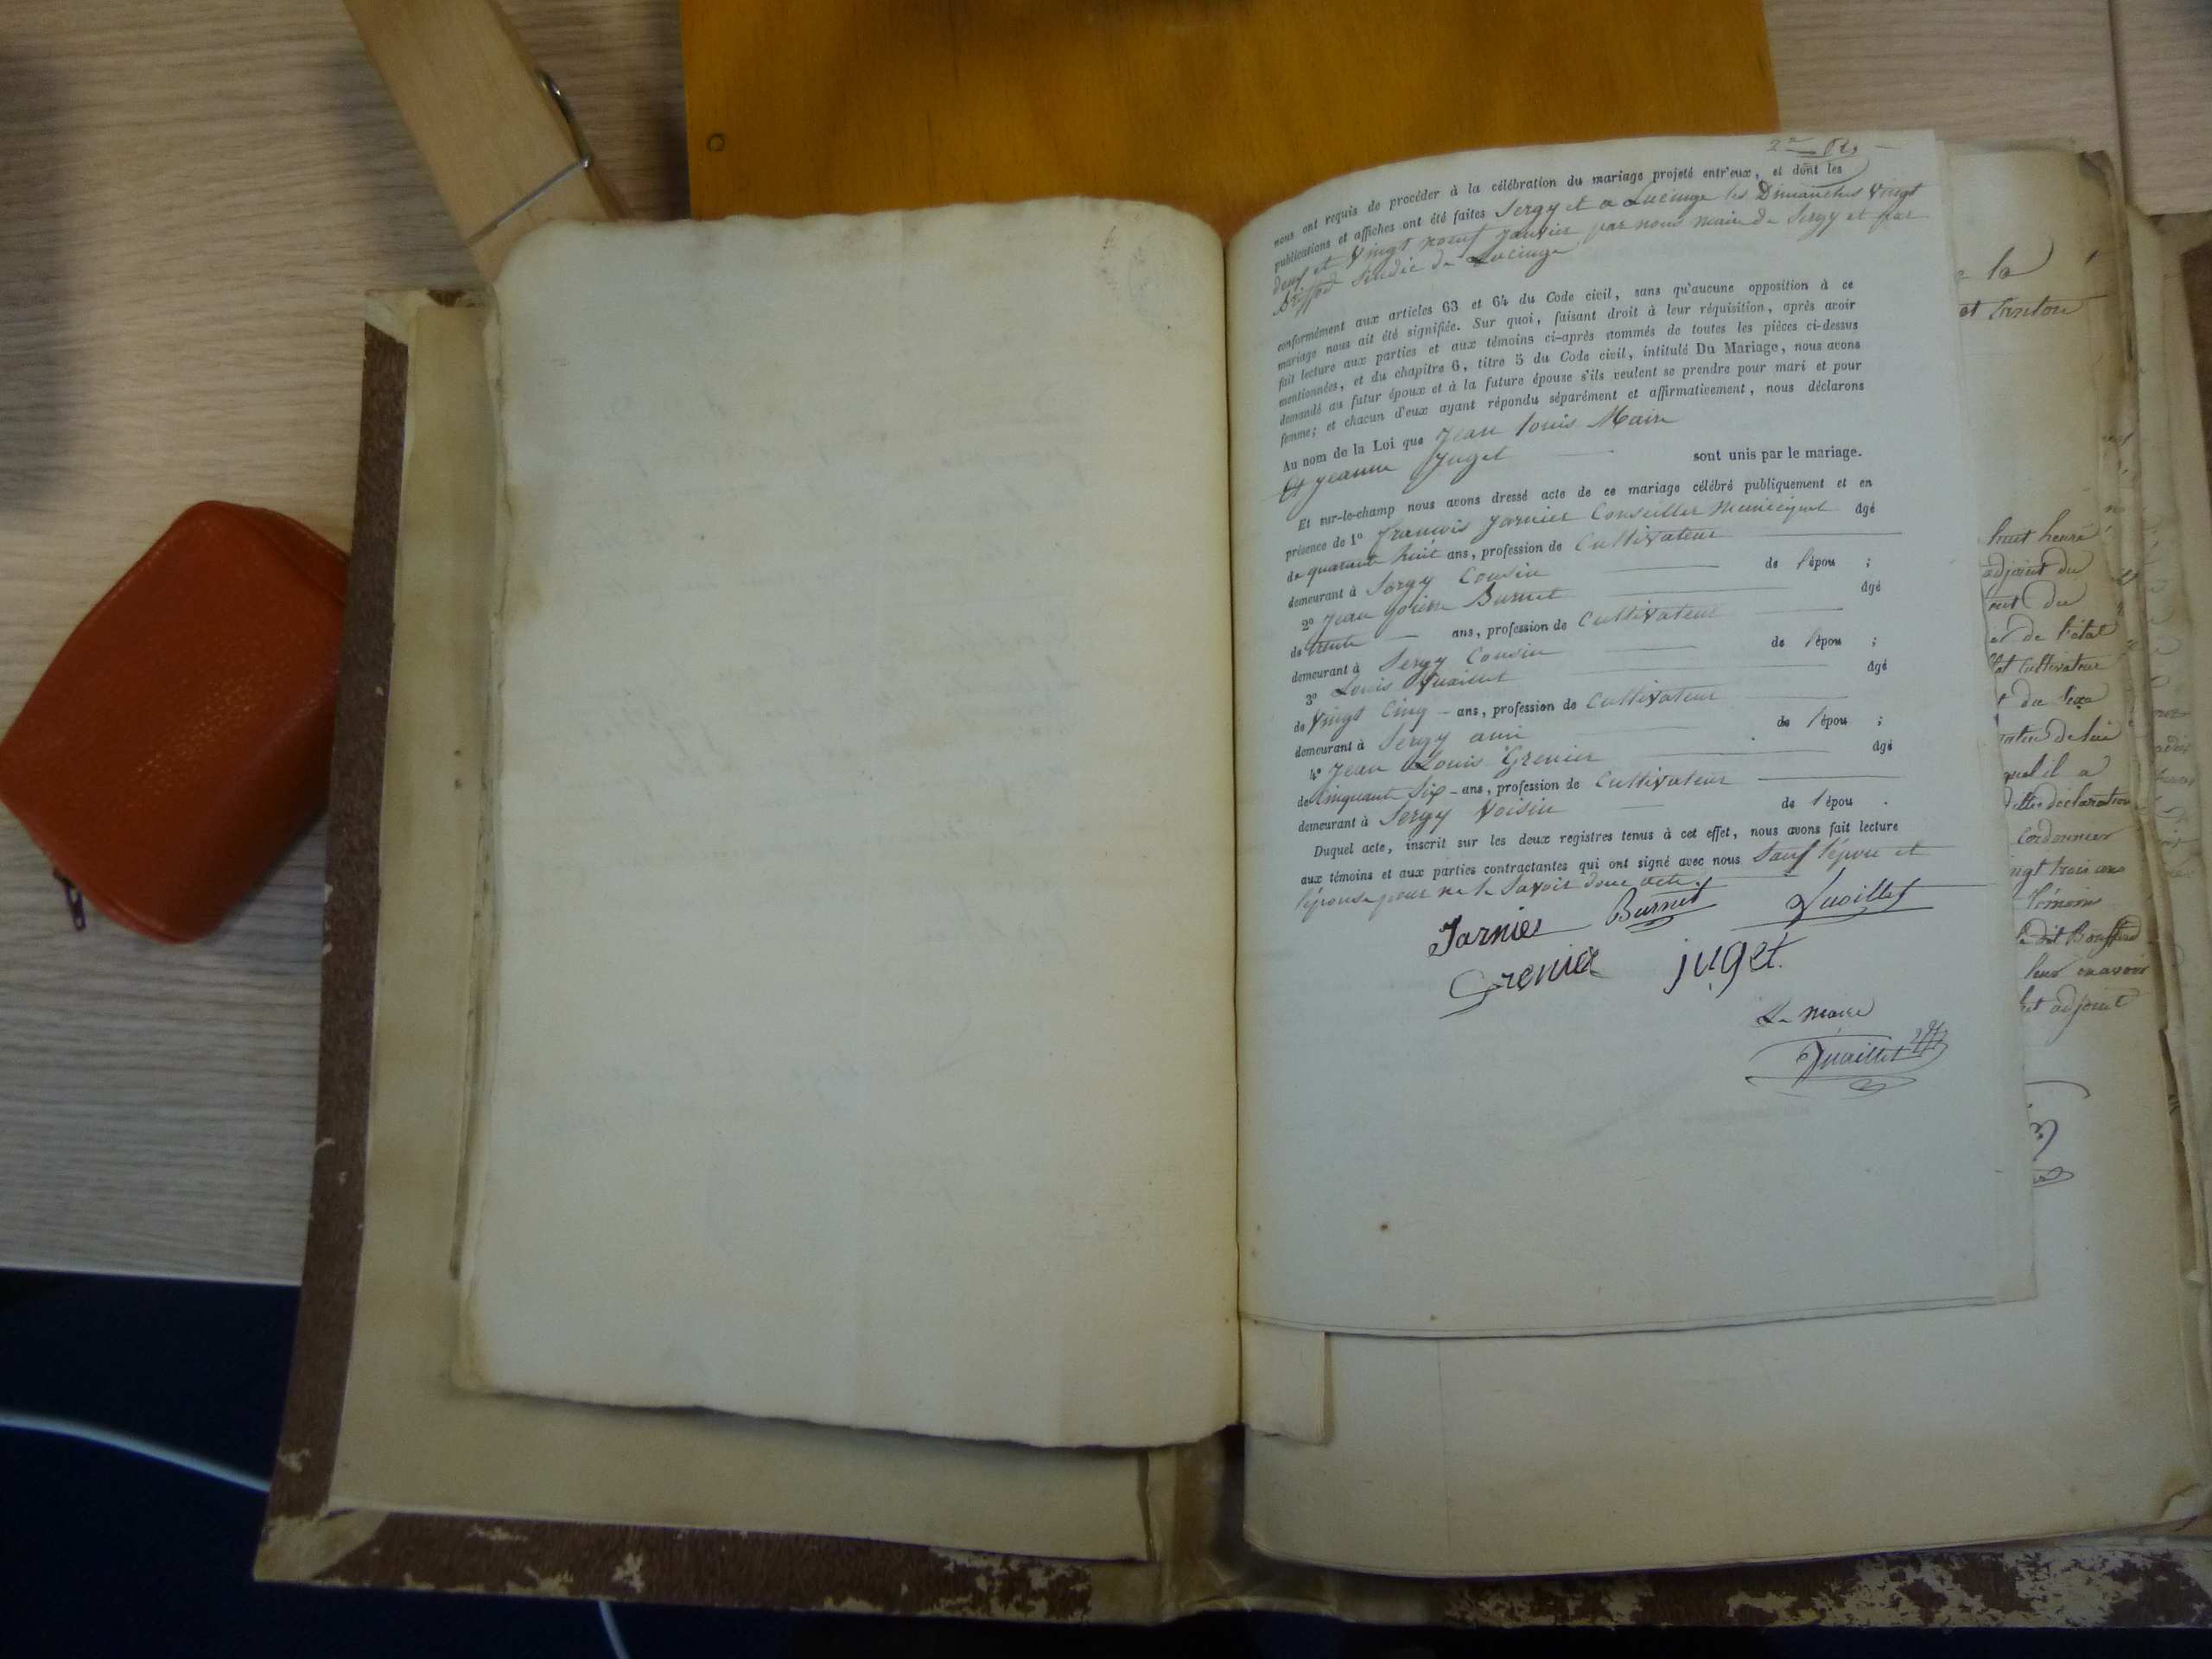 nous ont requis de procéder à la célébration du mariage projeté entr'eux, et dont les
publications et affiches ont été faites Sergy et a Lucinge les Dimanches Vingt
deux et Vingt neuf Janvier par nous maire de Sergy et par
Sindic de Lucinge
conformément aux articles 63 et 64 du Code civil, sans qu'aucune opposition à ce
mariage nous ait été signifiée. Sur quoi, faisant droit à leur réquisition, après avoir
fait lecture aux parties et aux témoins ci-après nommés de toutes les pièces ci-dessus
mentionnées, et du chapitre 6, titre 5 du Code civil, intitulé Du Mariage, nous avons
demandé au futur époux et à la future épouse s'ils veulent se prendre pour mari et pour
femme; et chacun d'eux ayant répondu séparément et affirmativement, nous déclarons
Au nom de la Loi que Jean louis
Et Jeanne Juget sont unis par le mariage.
Et sur-le-champ nous avons dressé acte de ce mariage célébré publiquement et en
présence de 1º francois Jarnier Conseiller Municipal âgé
de quarante huit ans, profession de Cultivateur
demeurant à Sergy Cousin de l'épou ;
2º Jean Burnet âgé
de trente ans, profession de Cultivateur
demeurant à Sergy Cousin de l'épou ;
3º Louis âgé
de Vingt Cinq ans, profession de Cultivateur
demeurant à Sergy ami de l'épou ;
4º Jean Louis Grenier âgé
de Cinquante Six ans, profession de Cultivateur
demeurant à Sergy Voisin de l'épou .
Duquel acte, inscrit sur les deux registres tenus à cet effet, nous avons fait lecture
aux témoins et aux parties contractantes qui ont signé avec nous Sauf l'épou et
l'épouse pour ne le Savoir dont acte.
Jarnier Burnet
Grenier juget.
Le maire
la
et Canton
huit heure
adjoint du
du
de l'état
Cultivateur
du Sexe
de lui
quel il a
déclaration
Cordonnier
trois ans
témoins
adjoint